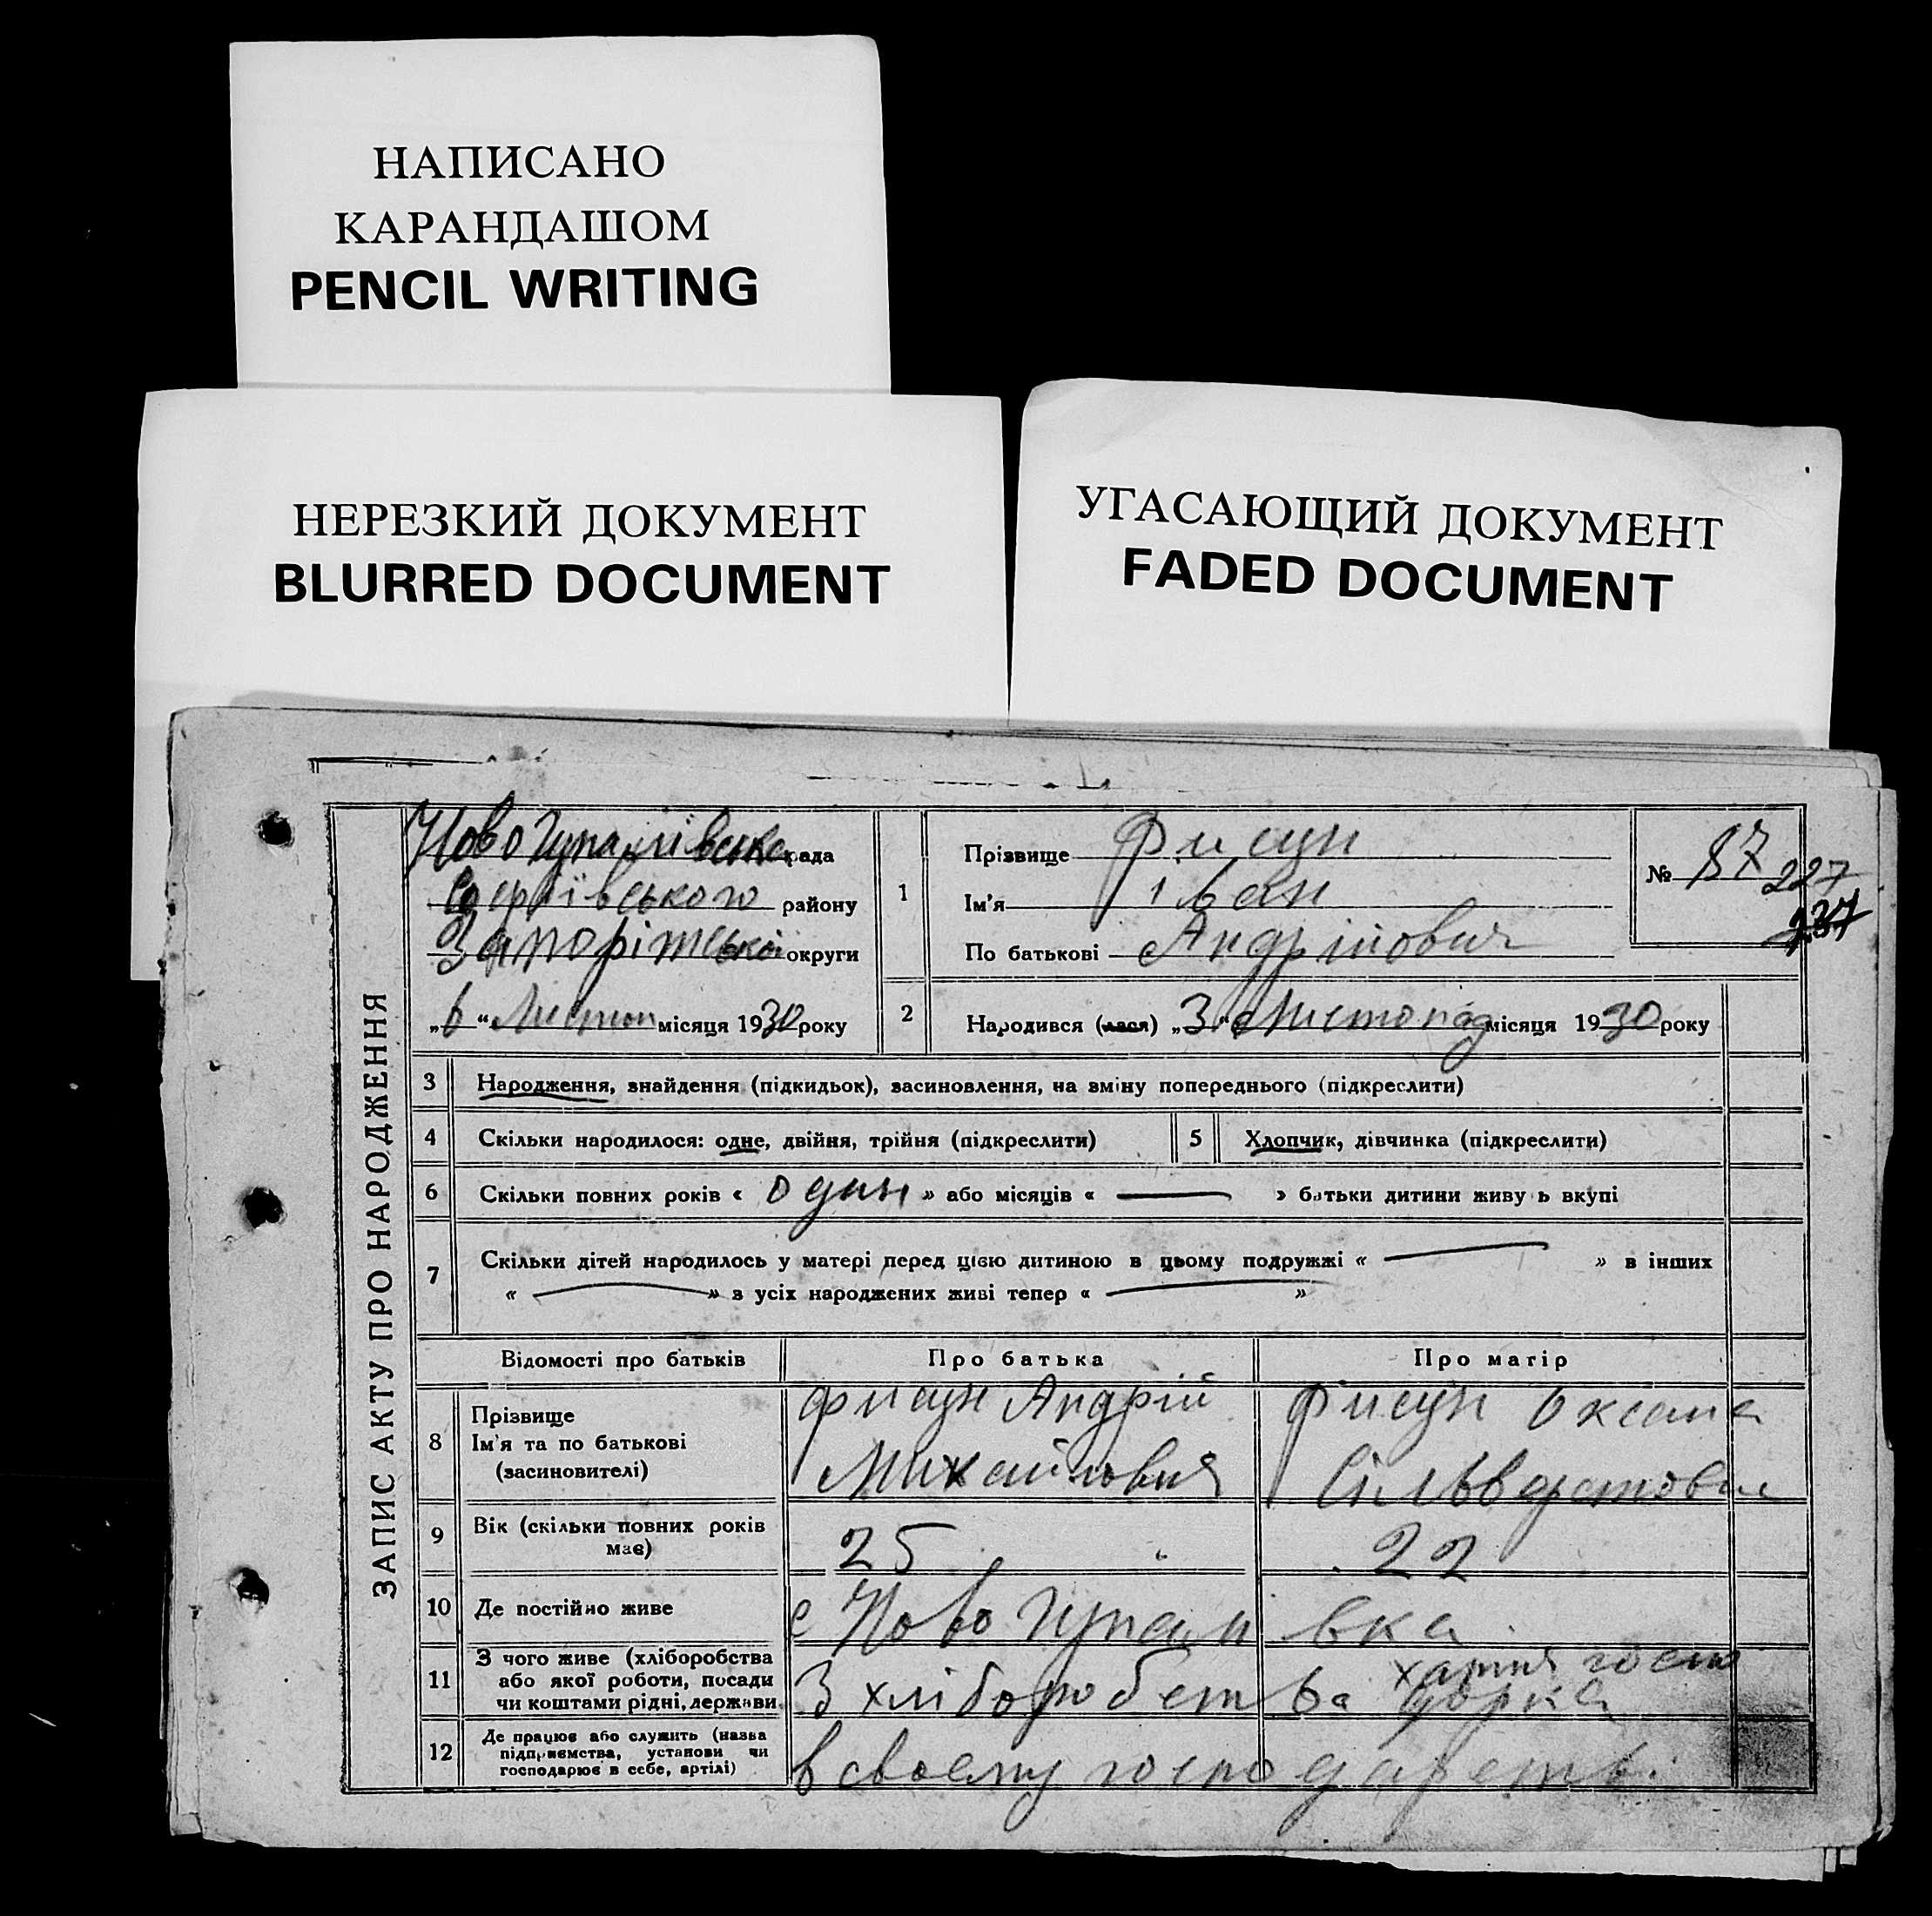 НАПИСАНО
КАРАНДАШОМ
PENCIL WRITING
НЕРЕЗКИЙ ДОКУМЕНТ
BLURRED DOCUMENT
УГАСАЮЩИЙ ДОКУМЕНТ
FADED DOCUMENT
ЗАПИС АКТУ ПРО НАРОДЖЕННЯ
Ново Гупалівська рада
району
Запоріжської округи
„6“ Листоп місяця 1930 року
1
Прізвище Фисун
Ім'я Іван
По батькові Андрійович
№ 87
227
237
2
Народився (лася) „3“ Листопад місяця 1930 року
3 Народження, знайдення (підкидьок), засиновлення, на зміну попереднього (підкреслити)
4 Скільки народилося: одне, двійня, трійня (підкреслити)
5 Хлопчик, дівчинка (підкреслити)
6 Скільки повних років « один » або місяців « — » батьки дитини живуть вкупі
7 Скільки дітей народилось у матері перед цією дитиною в цьому подружжі « — » в інших
« — » з усіх народжених живі тепер « — »
Відомості про батьків Про батька Про матір
8 Прізвище
Ім'я та по батькові
(засиновителі)
Фисун Андрій
Михайлович
Фисун Оксана
9 Вік (скільки повних років
має)
25 22
10 Де постійно живе с Ново Гупалівка
11 З чого живе (хліборобства
або якої роботи, посади
чи коштами рідні, держави
З хліборобства
12 Де працює або служить (назва
підприємства, установи чи
господарює в себе, артілі)
в своему господарстві